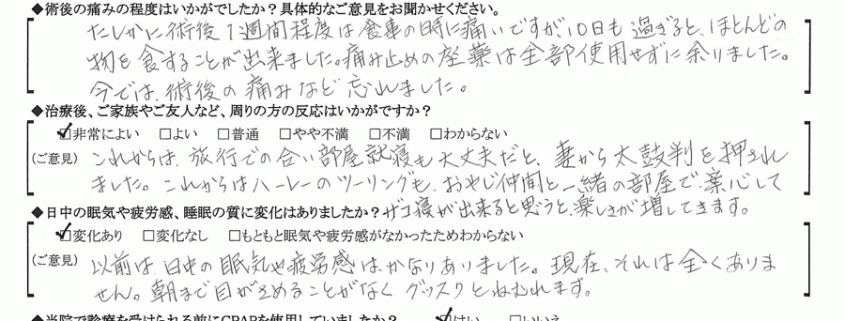 ◆術後の痛みの程度はいかがでしたか？具体的なご意見をお聞かせください。
たしかに術後1週間程度は食事の時に痛いですが10日も過ぎると、ほとんどの
物を食することが出来ました。痛み止めの座薬は全部使用せずに余りました。
今では、術後の痛みなど忘れました。
◆治療後、ご家族やご友人など、周りの方の反応はいかがですか？
☑非常によい □よい □普通 □やや不満 □不満 □わからない
(ご意見) これからは、旅行での合い部屋就寝も大丈夫だと、妻から太鼓判を押され
ました。これからはハーレーのツーリングも、おやじ仲間と一緒の部屋で、安心して
◆日中の眠気や疲労感、睡眠の質に変化はありましたか？ザコ寝が出来ると思うと、楽しさが増してきます。
☑変化あり □変化なし □もともと眠気や疲労感がなかったためわからない
(ご意見) 以前は、日中の眠気や疲労感は、かなりありました。現在、それは全くありま
せん。朝まで目が覚めることがなくグッスリとねむれます。
◆当院で診療を受けられる前にCPAPを使用していましたか？ ☑はい □いいえ